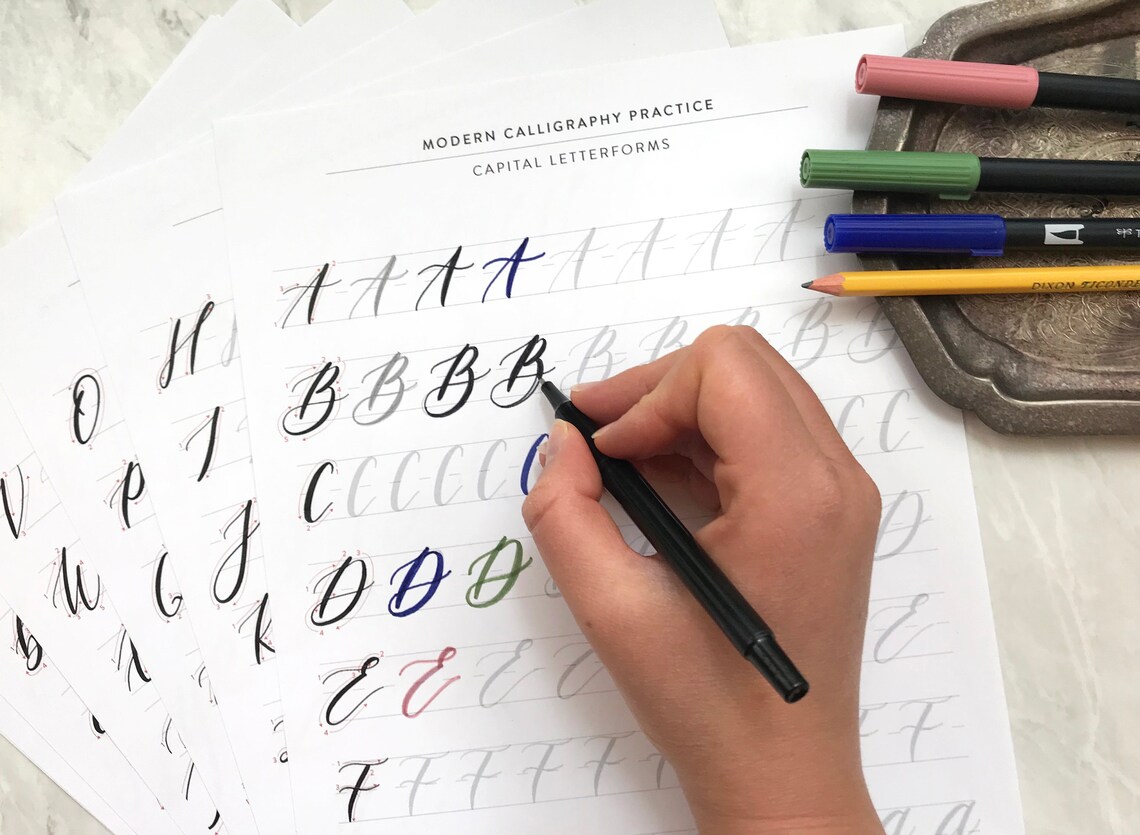 MODERN CALLIGRAPHY PRACTICE
CAPITAL LETTERFORMS
A A A A A A A A
B B B B B B B B B
C C C C C C C C
D D D D
E E E E E
F F F F F F F F
H
I
J
K
O
P
V
W
DIXON TICONDE